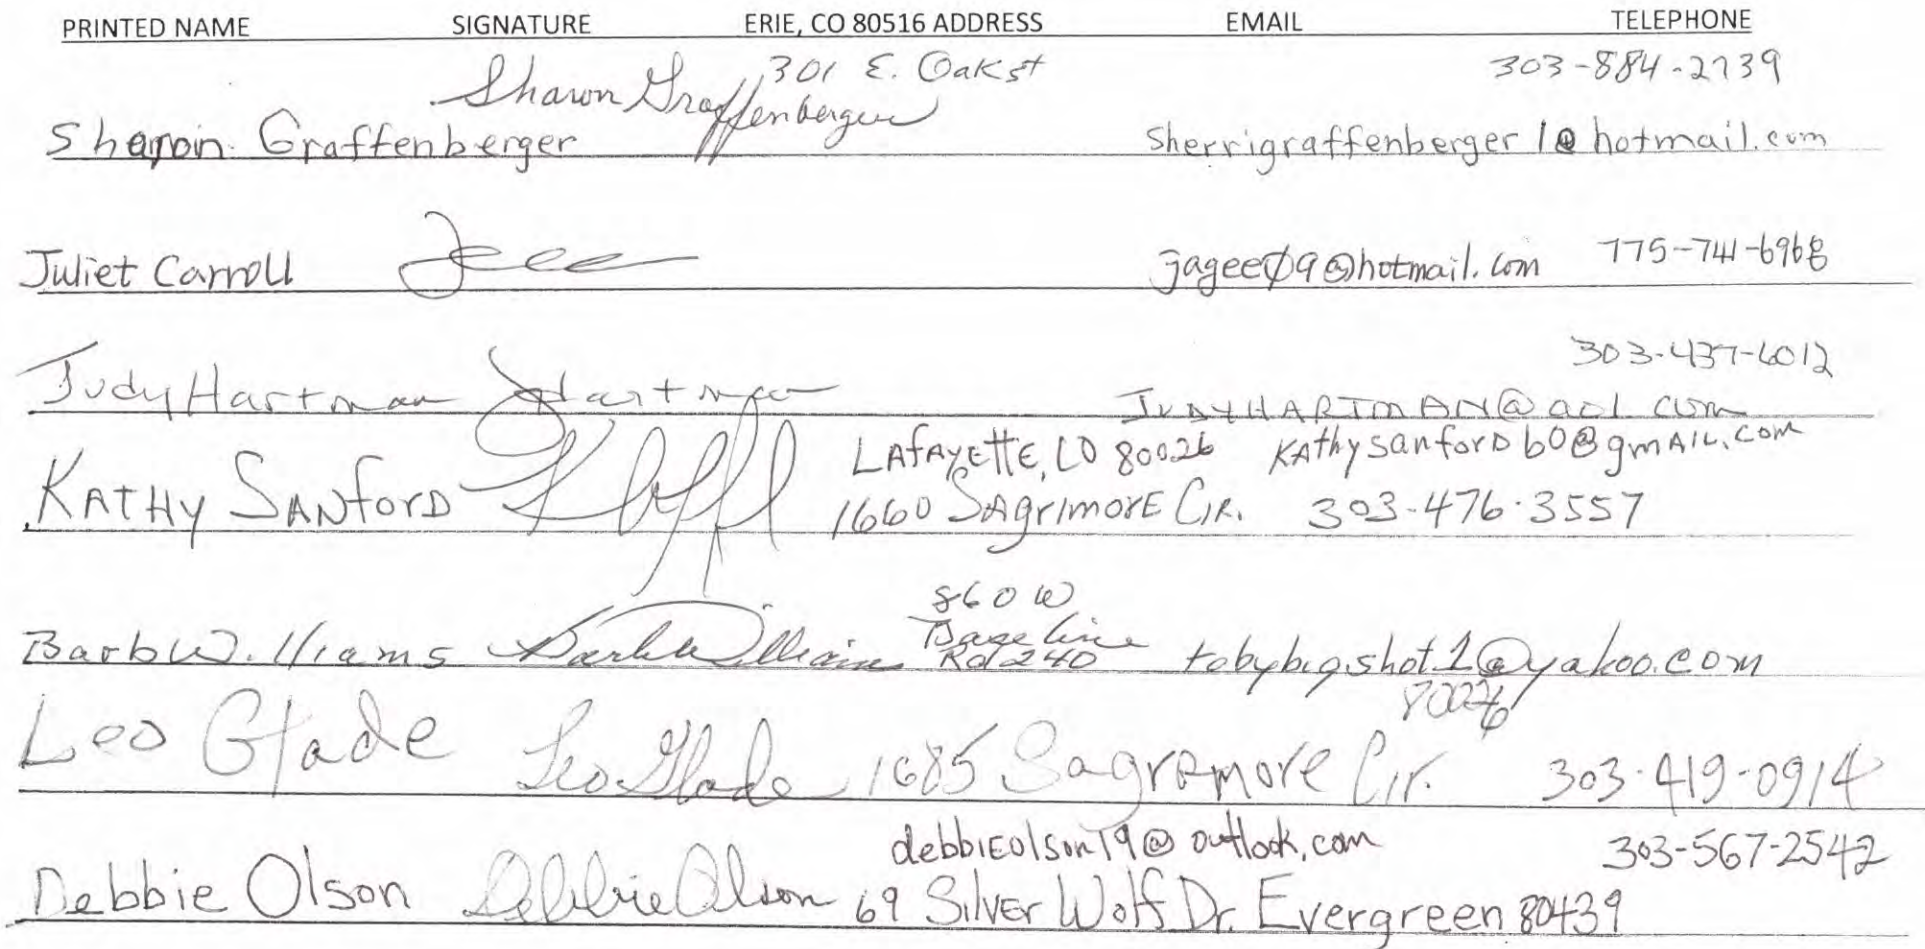 PRINTED NAME SIGNATURE ERIE, CO 80516 ADDRESS EMAIL TELEPHONE
Sharon Graffenberger Sharon Graffenberger 301 E. Oak st Sherrigraffenberger1@hotmail.com 303-884-2739
Juliet Carroll jagee09@hotmail.com 775-741-6968
Judy Hartman Hartman JUDYHARTMAN@aol.com 303-437-6012
KATHY SANFORD LAFAYETTE, CO 80026 KAthysanforD60@gmAIL.com
1660 SAgrimorE CIR. 303-476-3557
Barb Williams Barb Williams 860 W Base Line Rd 240 tobybigshot1@yahoo.com
80026
Leo Glade Leo Glade 1685 Sagramore Cir. 303-419-0914
debbiEolson19@outlook.com 303-567-2542
Debbie Olson Debbie Olson 69 Silver Wolf Dr. Evergreen 80439